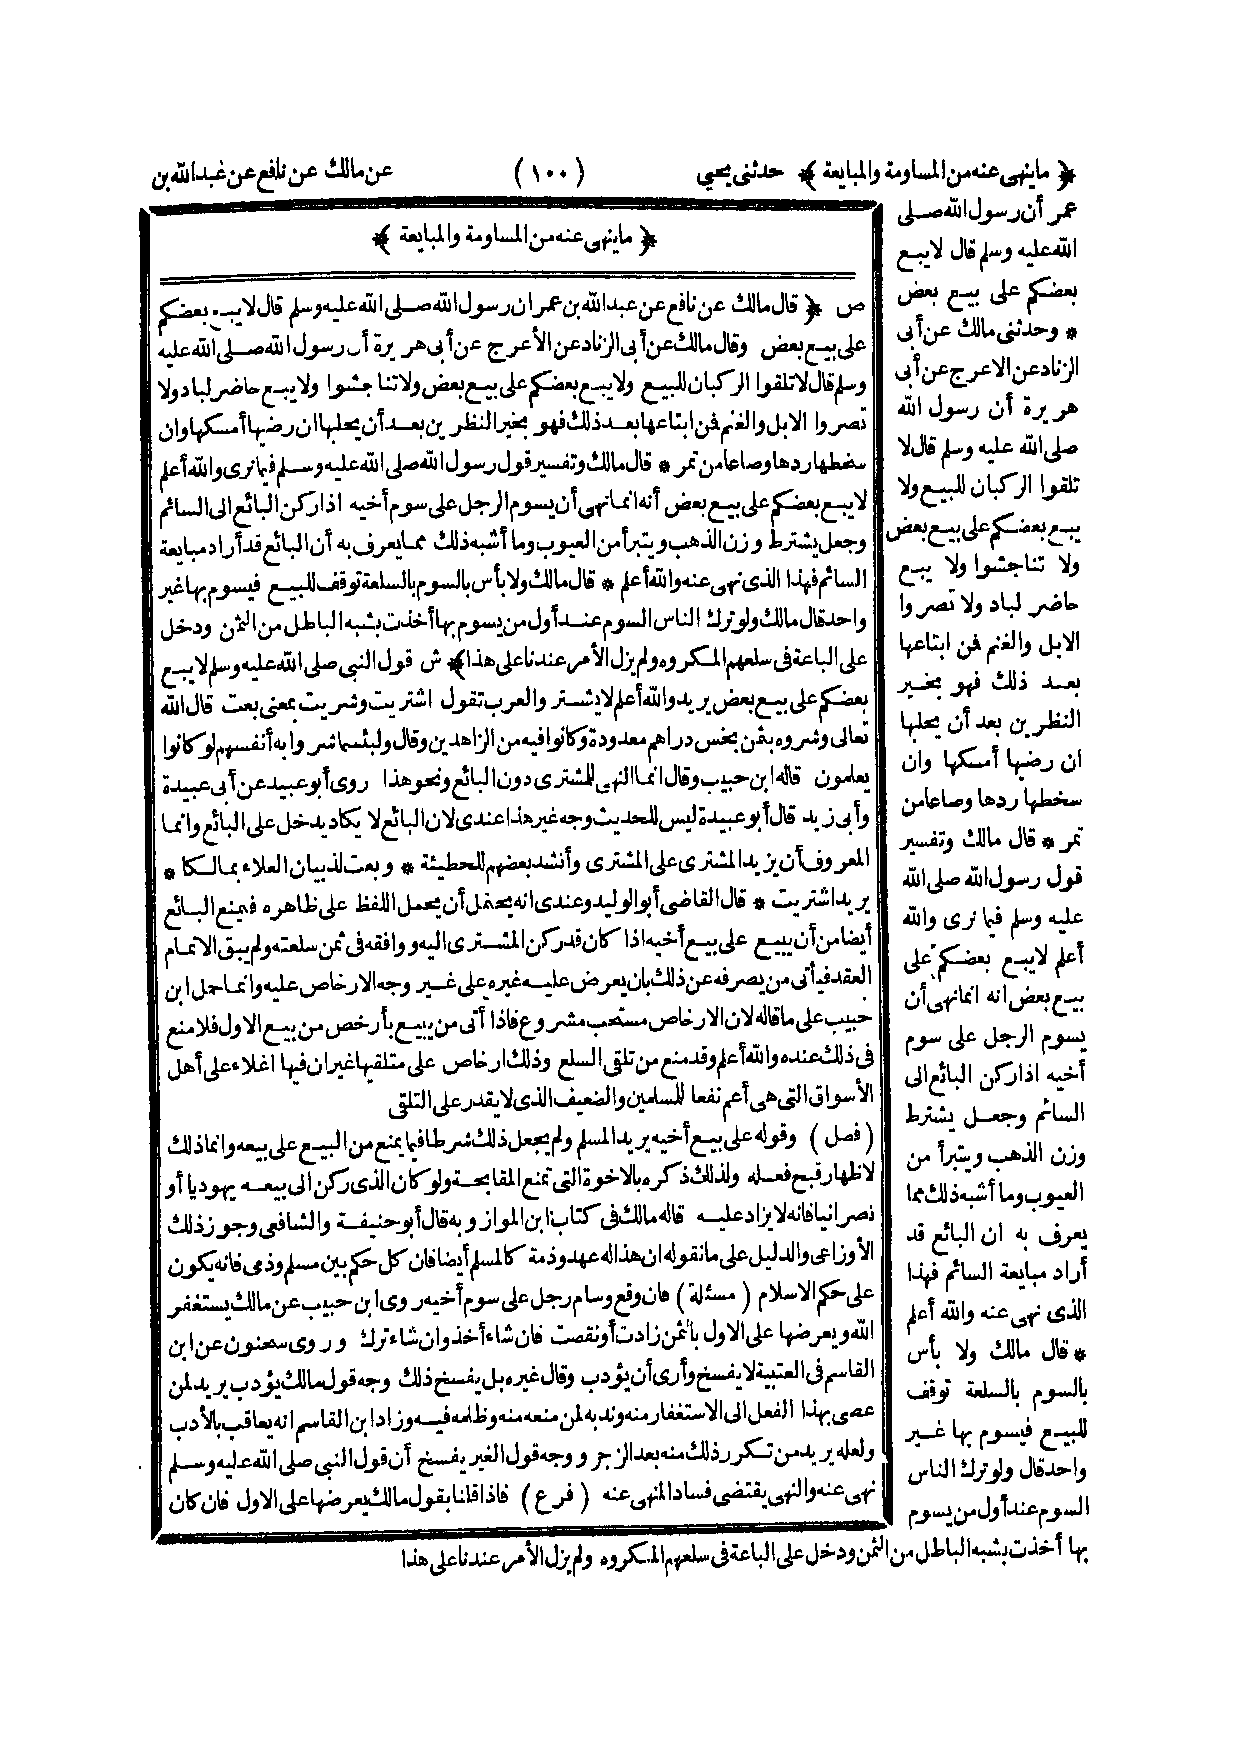 ﴿ ماينهى عنه من المساومة والمبايعة ﴾ حدثنى يحيى (١٠٠) عن مالك عن نافع عن عبد الله بن
عمر أن رسول الله صلى
الله عليه وسلم قال لا يبع
بعضكم على بيع بعض
* وحدثنى مالك عن أبى
الزناد عن الاعرج عن أبى
هريرة أن رسول الله
صلى الله عليه وسلم قال لا
تلقوا الركبان للبيع ولا
يبع بعضكم على بيع بعض
ولا تناجشوا ولا يبع
حاضر لباد ولا تصروا
الابل والغنم فمن ابتاعها
بعد ذلك فهو بخير
النظرين بعد أن يحلبها
ان رضيها أمسكها وان
سخطها ردها وصاعا من
تمر * قال مالك وتفسير
قول رسول الله صلى الله
عليه وسلم فيما نرى والله
أعلم لا يبع بعضكم على
بيع بعض انه انما نهى أن
يسوم الرجل على سوم
أخيه اذا ركن البائع الى
السائم وجعل يشترط
وزن الذهب ويتبرأ من
العيوب وما أشبه ذلك مما
يعرف به ان البائع قد
أراد مبايعة السائم فهذا
الذى نهى عنه والله أعلم
* قال مالك ولا بأس
بالسوم بالسلعة توقف
للبيع فيسوم بها غير
واحد قال ولو ترك الناس
السوم عند أول من يسوم
بها أخذت بشبه الباطل من الثمن ودخل على الباعة فى سلعهم المكروه ولم يزل الأمر عندنا على هذا
﴿ ماينهى عنه من المساومة والمبايعة ﴾
ص ﴿ قال مالك عن نافع عن عبد الله بن عمر ان رسول الله صلى الله عليه وسلم قال لا يبع بعضكم
على بيع بعض وقال مالك عن أبى الزناد عن الأعرج عن أبى هريرة أن رسول الله صلى الله عليه
وسلم قال لا تلقوا الركبان للبيع ولا يبع بعضكم على بيع بعض ولا تناجشوا ولا يبع حاضر لباد ولا
تصروا الابل والغنم فمن ابتاعها بعد ذلك فهو بخير النظرين بعد أن يحلبها ان رضيها أمسكها وان
سخطها ردها وصاعا من تمر * قال مالك وتفسير قول رسول الله صلى الله عليه وسلم فيما نرى والله أعلم
لا يبع بعضكم على بيع بعض أنه انما نهى أن يسوم الرجل على سوم أخيه اذا ركن البائع الى السائم
وجعل يشترط وزن الذهب ويتبرأ من العيوب وما أشبه ذلك مما يعرف به أن البائع قد أراد مبايعة
السائم فهذا الذى نهى عنه والله أعلم * قال مالك ولا بأس بالسوم بالسلعة توقف للبيع فيسوم بها غير
واحد قال مالك ولو ترك الناس السوم عند أول من يسوم بها أخذت بشبه الباطل من الثمن ودخل
على الباعة فى سلعهم المكروه ولم يزل الأمر عندنا على هذا ﴾ ش قول النبى صلى الله عليه وسلم لا يبع
بعضكم على بيع بعض يريد والله أعلم لا يشتر والعرب تقول اشتريت وشريت بمعنى بعت قال الله
تعالى وشروه بثمن بخس دراهم معدودة وكانوا فيه من الزاهدين وقال ولبئسما شروا به أنفسهم لو كانوا
يعلمون قاله ابن حبيب وقال انما النهى للمشترى دون البائع ونحو هذا روى أبو عبيد عن أبى عبيدة
وأبى زيد قال أبو عبيدة ليس للحديث وجه غير هذا عندى لان البائع لا يكاد يدخل على البائع وانما
المعروف أن يزيد المشترى على المشترى وأنشد بعضهم للحطيئة * وبعت لذبيان العلاء بمالكا *
يريد اشتريت * قال القاضى أبو الوليد وعندى انه يحتمل أن يحمل اللفظ على ظاهره فيمنع البائع
أيضا من أن يبيع على بيع أخيه اذا كان قد ركن المشترى اليه ووافقه فى ثمن سلعته ولم يبق الا تمام
العقد فيأتى من يصرفه عن ذلك بان يعرض عليه غيره على غير وجه الارخاص عليه وانما حمل ابن
حبيب على ما قاله لان الارخاص مستحب مشروع فاذا أتى من يبيع بأرخص من بيع الاول فلا منع
فى ذلك عنده والله أعلم وقد منع من تلقى السلع وذلك ارخاص على متلقيها غير ان فيها اغلاء على أهل
الأسواق التى هى أعم نفعا للمسلمين والضعيف الذى لا يقدر على التلقى
( فصل ) وقوله على بيع أخيه يريد المسلم ولم يجعل ذلك شرطا فيما يمنع من البيع على بيعه وانما ذلك
لاظهار قبح فعله ولذلك ذكره بالاخوة التى تمنع المقابحة ولو كان الذى ركن الى بيعه يهوديا أو
نصرانيا فانه لا يزاد عليه قاله مالك فى كتاب ابن المواز وبه قال أبو حنيفة والشافعى وجوز ذلك
الأوزاعى والدليل على ما نقوله ان هذا له عهد وذمة كالمسلم أيضا فان كل حكم بين مسلم وذمى فانه يكون
على حكم الاسلام ( مسئلة ) فان وقع وسام رجل على سوم أخيه روى ابن حبيب عن مالك يستغفر
الله ويعرضها على الاول بالثمن زادت أو نقصت فان شاء أخذ وان شاء ترك وروى سحنون عن ابن
القاسم فى العتبية لا يفسخ وأرى أن يؤدب وقال غيره بل يفسخ ذلك وجه قول مالك يؤدب يريد لمن
عصى بهذا الفعل الى الاستغفار منه وندبه لمن منعه منه وظلمه فيه وزاد ابن القاسم انه يعاقب بالأدب
ولعله يريد من تكرر ذلك منه بعد الزجر ووجه قول الغير يفسخ أن قول النبى صلى الله عليه وسلم
نهى عنه والنهى يقتضى فساد المنهى عنه ( فرع ) فاذا قلنا بقول مالك يعرضها على الاول فان كان